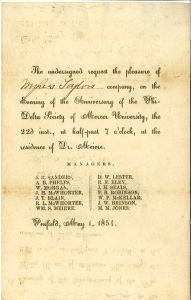 The undersigned request the pleasure of
Myles Taylor's company, on the
Evening of the Anniversary of the Phi-
Delta Society of Mercer University, the
22d inst., at half-past 7 o'clock, at the
residence of Dr.
MANAGERS,
J. E. SANDERS,
A. B. PHELPS,
W. MORGAN,
J. H. McWHORTER,
J. T. BLAIN,
R. L. McWHORTER,
WM. S.
D. W. LESTER,
R. F. ELEY,
J. H. SEALS,
P. B. ROBINSON,
W. P. McKELLAR,
J. W. BRINSON,
M. M. JONES.
Penfield, May 1, 1854.